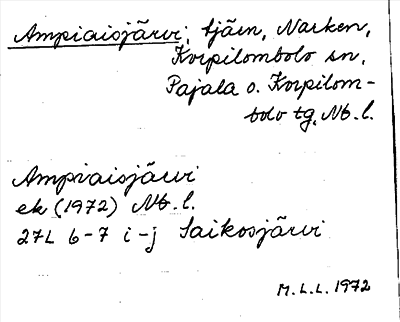 Ampiaisjärvi, tjäen, Narken,
Korpilombolo sn,
Pajala o. Korpilom-
bolo tg, Nb. l.
Ampiaisjärvi
ek (1972) Nb. l.
27L 6-7 i-j Saikosjärvi
M.L.L. 1972